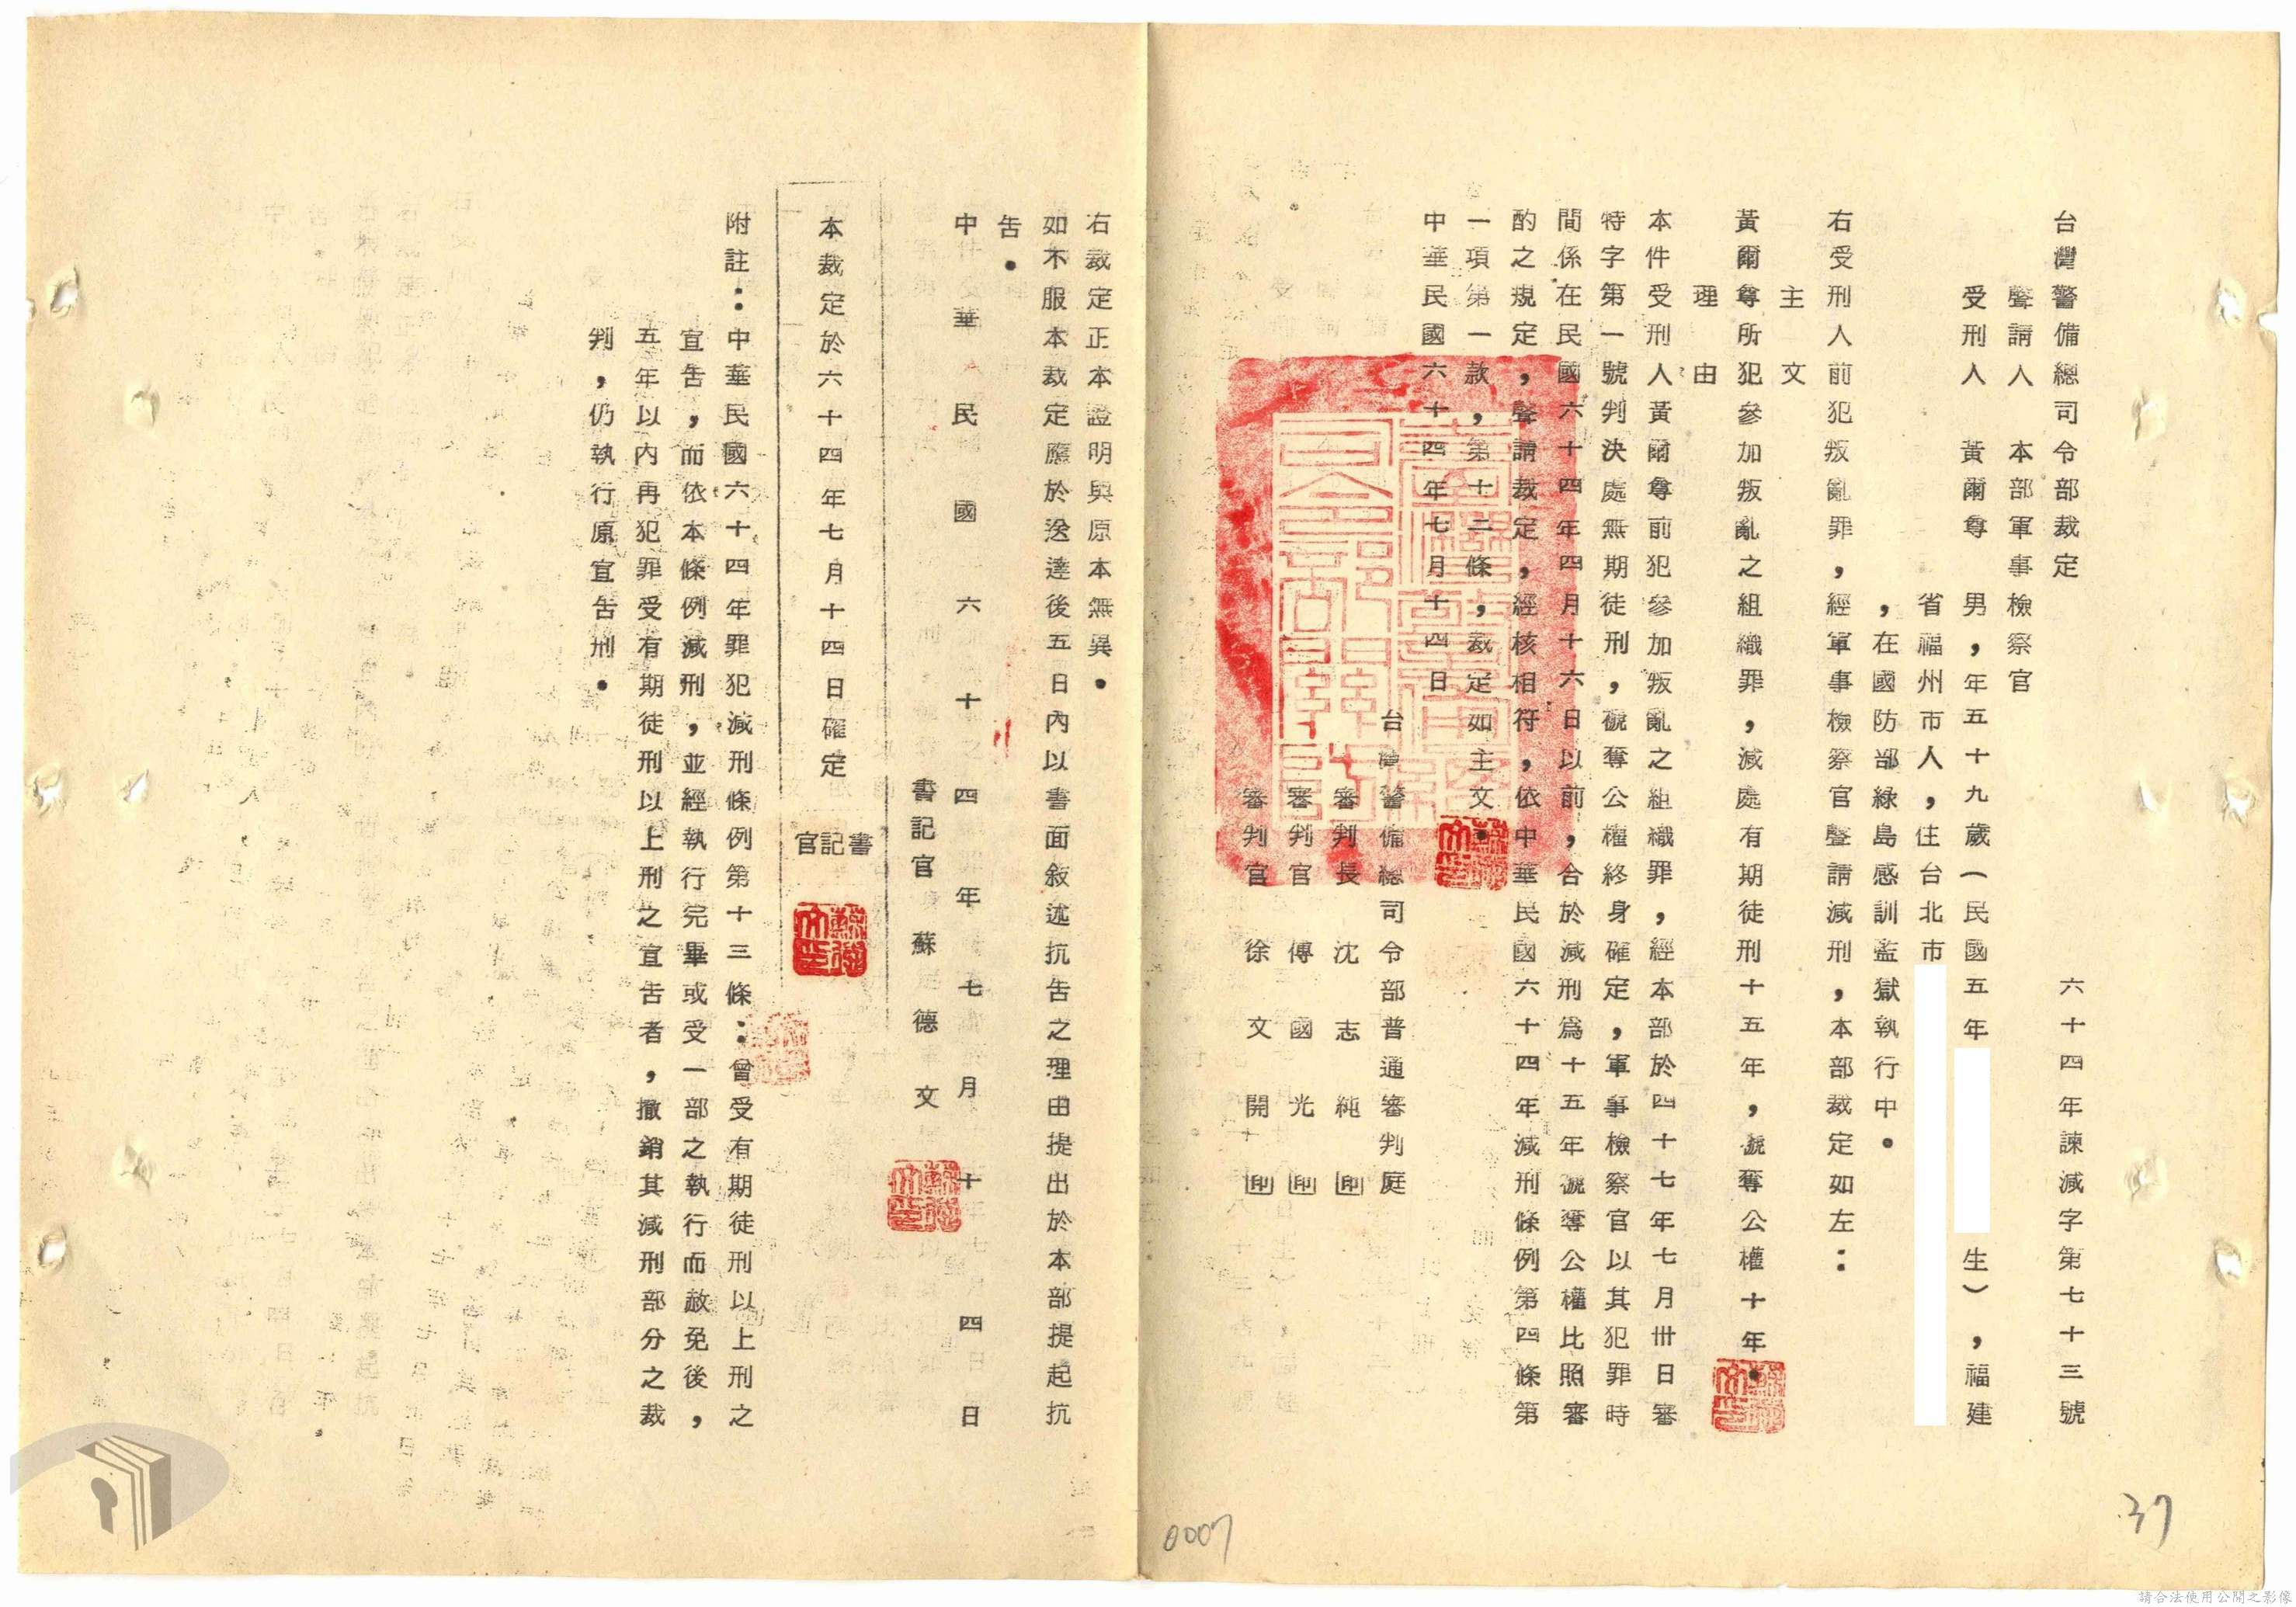 台灣警備總司令部裁定
六十四年諫減字第七十三號
聲請人　本部軍事檢察官
受刑人　黃爾尊　男，年五十九歲（民國五年　　生），福建
省福州市人，住台北市
，在國防部綠島感訓監獄執行中。
右受刑人前犯叛亂罪，經軍事檢察官聲請減刑，本部裁定如左：
主文
黃爾尊所犯參加叛亂之組織罪，減處有期徒刑十五年，褫奪公權十年。
理由
本件受刑人黃爾尊前犯參加叛亂之組織罪，經本部於四十七年七月卅日審
特字第一號判決處無期徒刑，褫奪公權終身確定，軍事檢察官以其犯罪時
間係在民國六十四年四月十六日以前，合於減刑為十五年褫奪公權比照審
酌之規定，聲請裁定，經核相符，依中華民國六十四年減刑條例第四條第
一項第一款，第十二條，裁定如主文。
中華民國六十四年七月十四日
台灣警備總司令部普通審判庭
審判長　沈志純　印
審判官　傅國光　印
審判官　徐文開　印
右裁定正本證明與原本無異。
如不服本裁定應於送達後五日內以書面敘述抗告之理由提出於本部提起抗
告。
中華民國六十四年七月十四日
書記官　蘇德文
本裁定於六十四年七月十四日確定
書記官
附註：中華民國六十四年罪犯減刑條例第十三條：曾受有期徒刑以上刑之
宣告，而依本條例減刑，並經執行完畢或受一部之執行而赦免後，
五年以內再犯罪受有期徒刑以上刑之宣告者，撤銷其減刑部分之裁
判，仍執行原宣告刑。
37
0007
請合法使用公開之影像